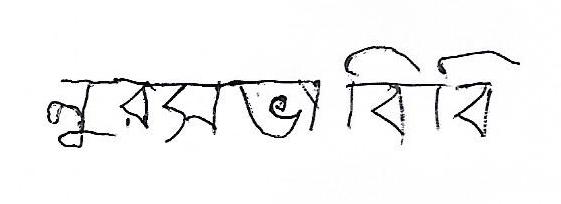 নুরসোভা বিবি